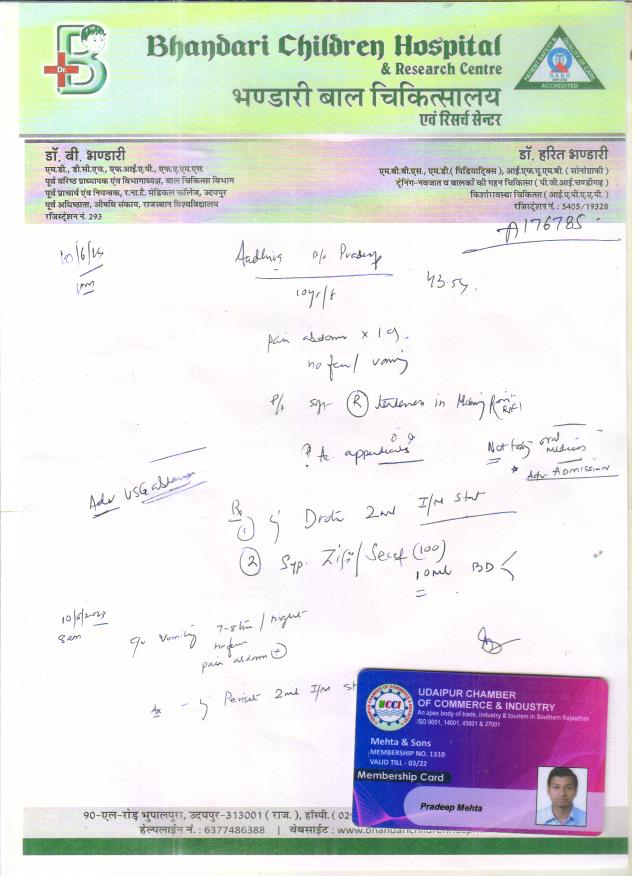 Dr.
B
Bhandari Children Hospital
& Research Centre
भण्डारी बाल चिकित्सालय
एवं रिसर्च सेन्टर
PATIENT SAFETY & QUALITY OF CARE
NABH
ACCREDITED
डॉ. बी. भण्डारी
एम.डी., डी.सी.एच., एफ.आई.ए.पी., एफ.ए.एम.एस
पूर्व वरिष्ठ प्राध्यापक एंव विभागाध्यक्ष, बाल चिकित्सा विभाग
पूर्व प्राचार्य एंव नियन्त्रक, र.ना.टै. मेडिकल कॉलेज, उदयपुर
पूर्व अधिष्ठाता, औषधि संकाय, राजस्थान विश्वविद्यालय
रजिस्ट्रेशन नं. 293
डॉ. हरित भण्डारी
एम.बी.बी.एस, एम.डी.( पिडियाट्रिक्स ), आई.एफ.यू.एम.बी. ( सोनोग्राफी )
ट्रेनिंग-नवजात व बालकों की गहन चिकित्सा ( पी.जी.आई.चण्डीगढ़ )
किशोरावस्था चिकित्सा ( आई.ए.पी.ए.ए.पी. )
रजिस्ट्रेशन नं. : 5405/19328
A176785
10/6/25
Pradeep
10yr/f
43.5
pain abdomen x 1d.
no fever/ vomiting
P/A (R) tenderness in
? Ac. appendicitis
Not taking oral
medicines
* Adv. ADMISSION
Adv USG abdomen
Rx
(1) 2ml I/M stat
(2) Syp. Zifi/ (100)
10ml BD
8am
c/o vomiting 7-8 / night
no fever
pain abdomen +
Periset 2ml I/M st
UCCI
UDAIPUR CHAMBER
OF COMMERCE & INDUSTRY
An apex body of trade, industry & tourism in Southern Rajasthan
ISO 9001, 14001, 45001 & 27001
Mehta & Sons
MEMBERSHIP NO. 1310
VALID TILL - 03/22
Membership Card
Pradeep Mehta
90-एल-रोड़ भुपालपुरा, उदयपुर-313001 ( राज. ), हॉस्पी. ( 02
हेल्पलाईन नं. : 6377486388 | वेबसाईट : www.bhandarichildrenhosp